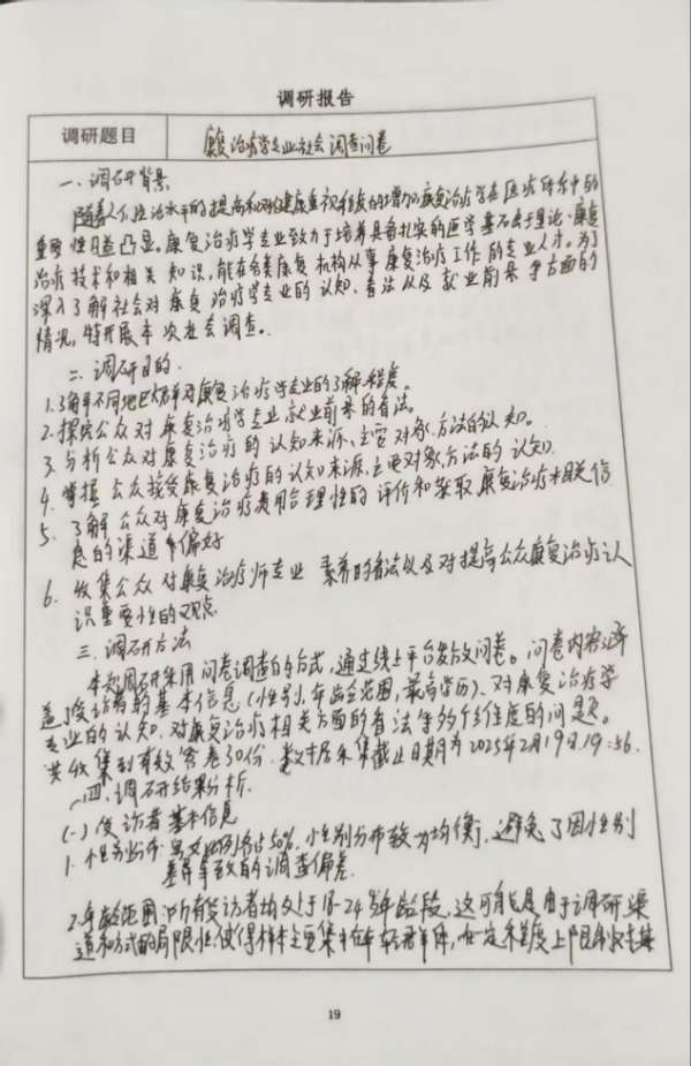 调研报告
调研题目 康复治疗学专业社会调查问卷
一、调研背景
随着人们生活水平的提高和对健康重视程度的增加,康复治疗学在医疗体系中的
重要性日益凸显。康复治疗学专业致力于培养具备扎实的医学基础理论、康复
治疗技术和相关知识,能在各类康复机构从事康复治疗工作的专业人才。为了
深入了解社会对康复治疗学专业的认知、看法以及就业前景等方面的
情况,特开展本次社会调查。
二、调研目的.
1.了解不同地区人群对康复治疗学专业的了解程度。
2.探究公众对康复治疗学专业就业前景的看法。
3.分析公众对康复治疗的认知来源、主要对象、方法的认知。
4.掌握公众接受康复治疗的认知来源、主要对象、方法的认知.
5.了解公众对康复治疗费用合理性的评价和获取康复治疗相关信
息的渠道偏好
6.收集公众对康复治疗师专业素养的看法以及对提高公众康复治疗认
识重要性的观点.
三、调研方法
本次调研采用问卷调查的方式,通过线上平台发放问卷。问卷内容涵
盖了受访者的基本信息(性别、年龄范围,最高学历)、对康复治疗学
专业的认知、对康复治疗相关方面的看法等多个维度的问题。
共收集到有效答卷30份.数据采集截止日期为2025年2月19日.19:56.
四、调研结果分析.
(一)受访者基本信息
1.性别分布:男女比例各占50%,性别分布较为均衡,避免了因性别
差异导致的调查偏差.
2.年龄范围:所有受访者均处于18-24岁年龄段,这可能是由于调研渠
道和方式的局限性,使得样本主要集中在年轻群体,在一定程度上限制了其
19